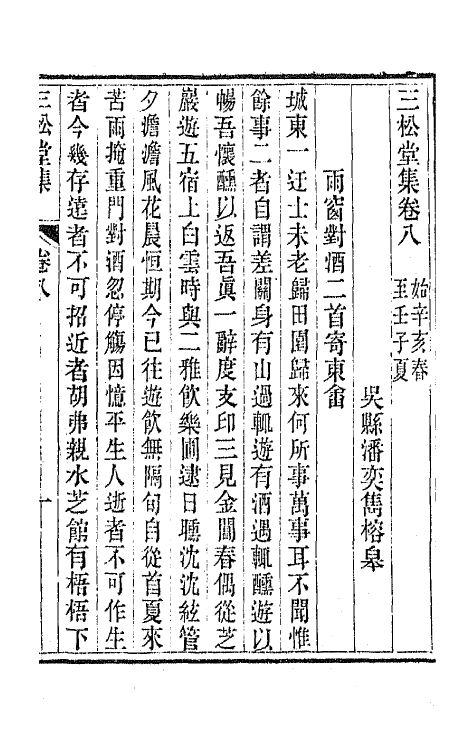 三松堂集卷八　始辛亥春
至壬子夏
吳縣潘奕雋榕皋
雨窗對酒二首寄東畬
城東一迂士未老歸田園歸來何所事萬事耳不聞惟
餘事二者自謂差關身有山過輒遊有酒遇輒醺遊以
暢吾懷醺以返吾眞一辭度支印三見金閶春偶從芝
巖遊五宿上白雲時與二雅飲樂圃逮日曛沈沈絃管
夕澹澹風花晨恒期今已往遊飲無隔旬自從首夏來
苦雨掩重門對酒忽停觴因憶平生人逝者不可作生
者今幾存遠者不可招近者胡弗親水芝館有梧梧下
三松堂集　卷八　一